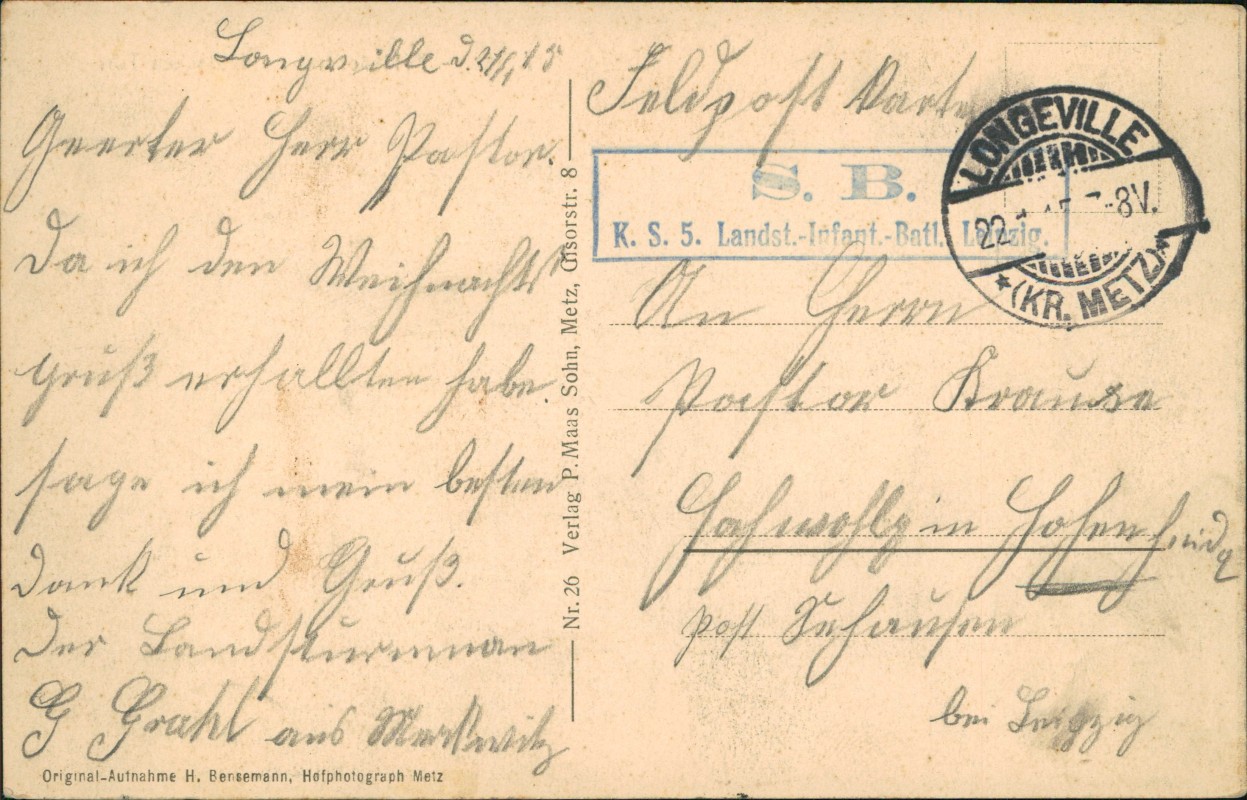 Longeville d. 21/1,15
Geerter Herr Pastor.
Da ich den Weihnachts
gruß erhallten habe
sage ich mein besten
Dank und Gruß.
Der Landsturmman
G Grahl aus Merkwitz
Original-Aufnahme H. Bensemann, Hofphotograph Metz
Nr. 26 Verlag P. Maas Sohn, Metz, Gisorstr. 8
Feldpost Karte
S. B.
K. S. 5. Landst.-Infant.-Batl. Leipzig.
LONGEVILLE
22. 7-8V.
* (KR. METZ) *
An Herrn
Pastor Krause
Hochwohlg in Hohenheida
Post Seehausen
bei Leipzig